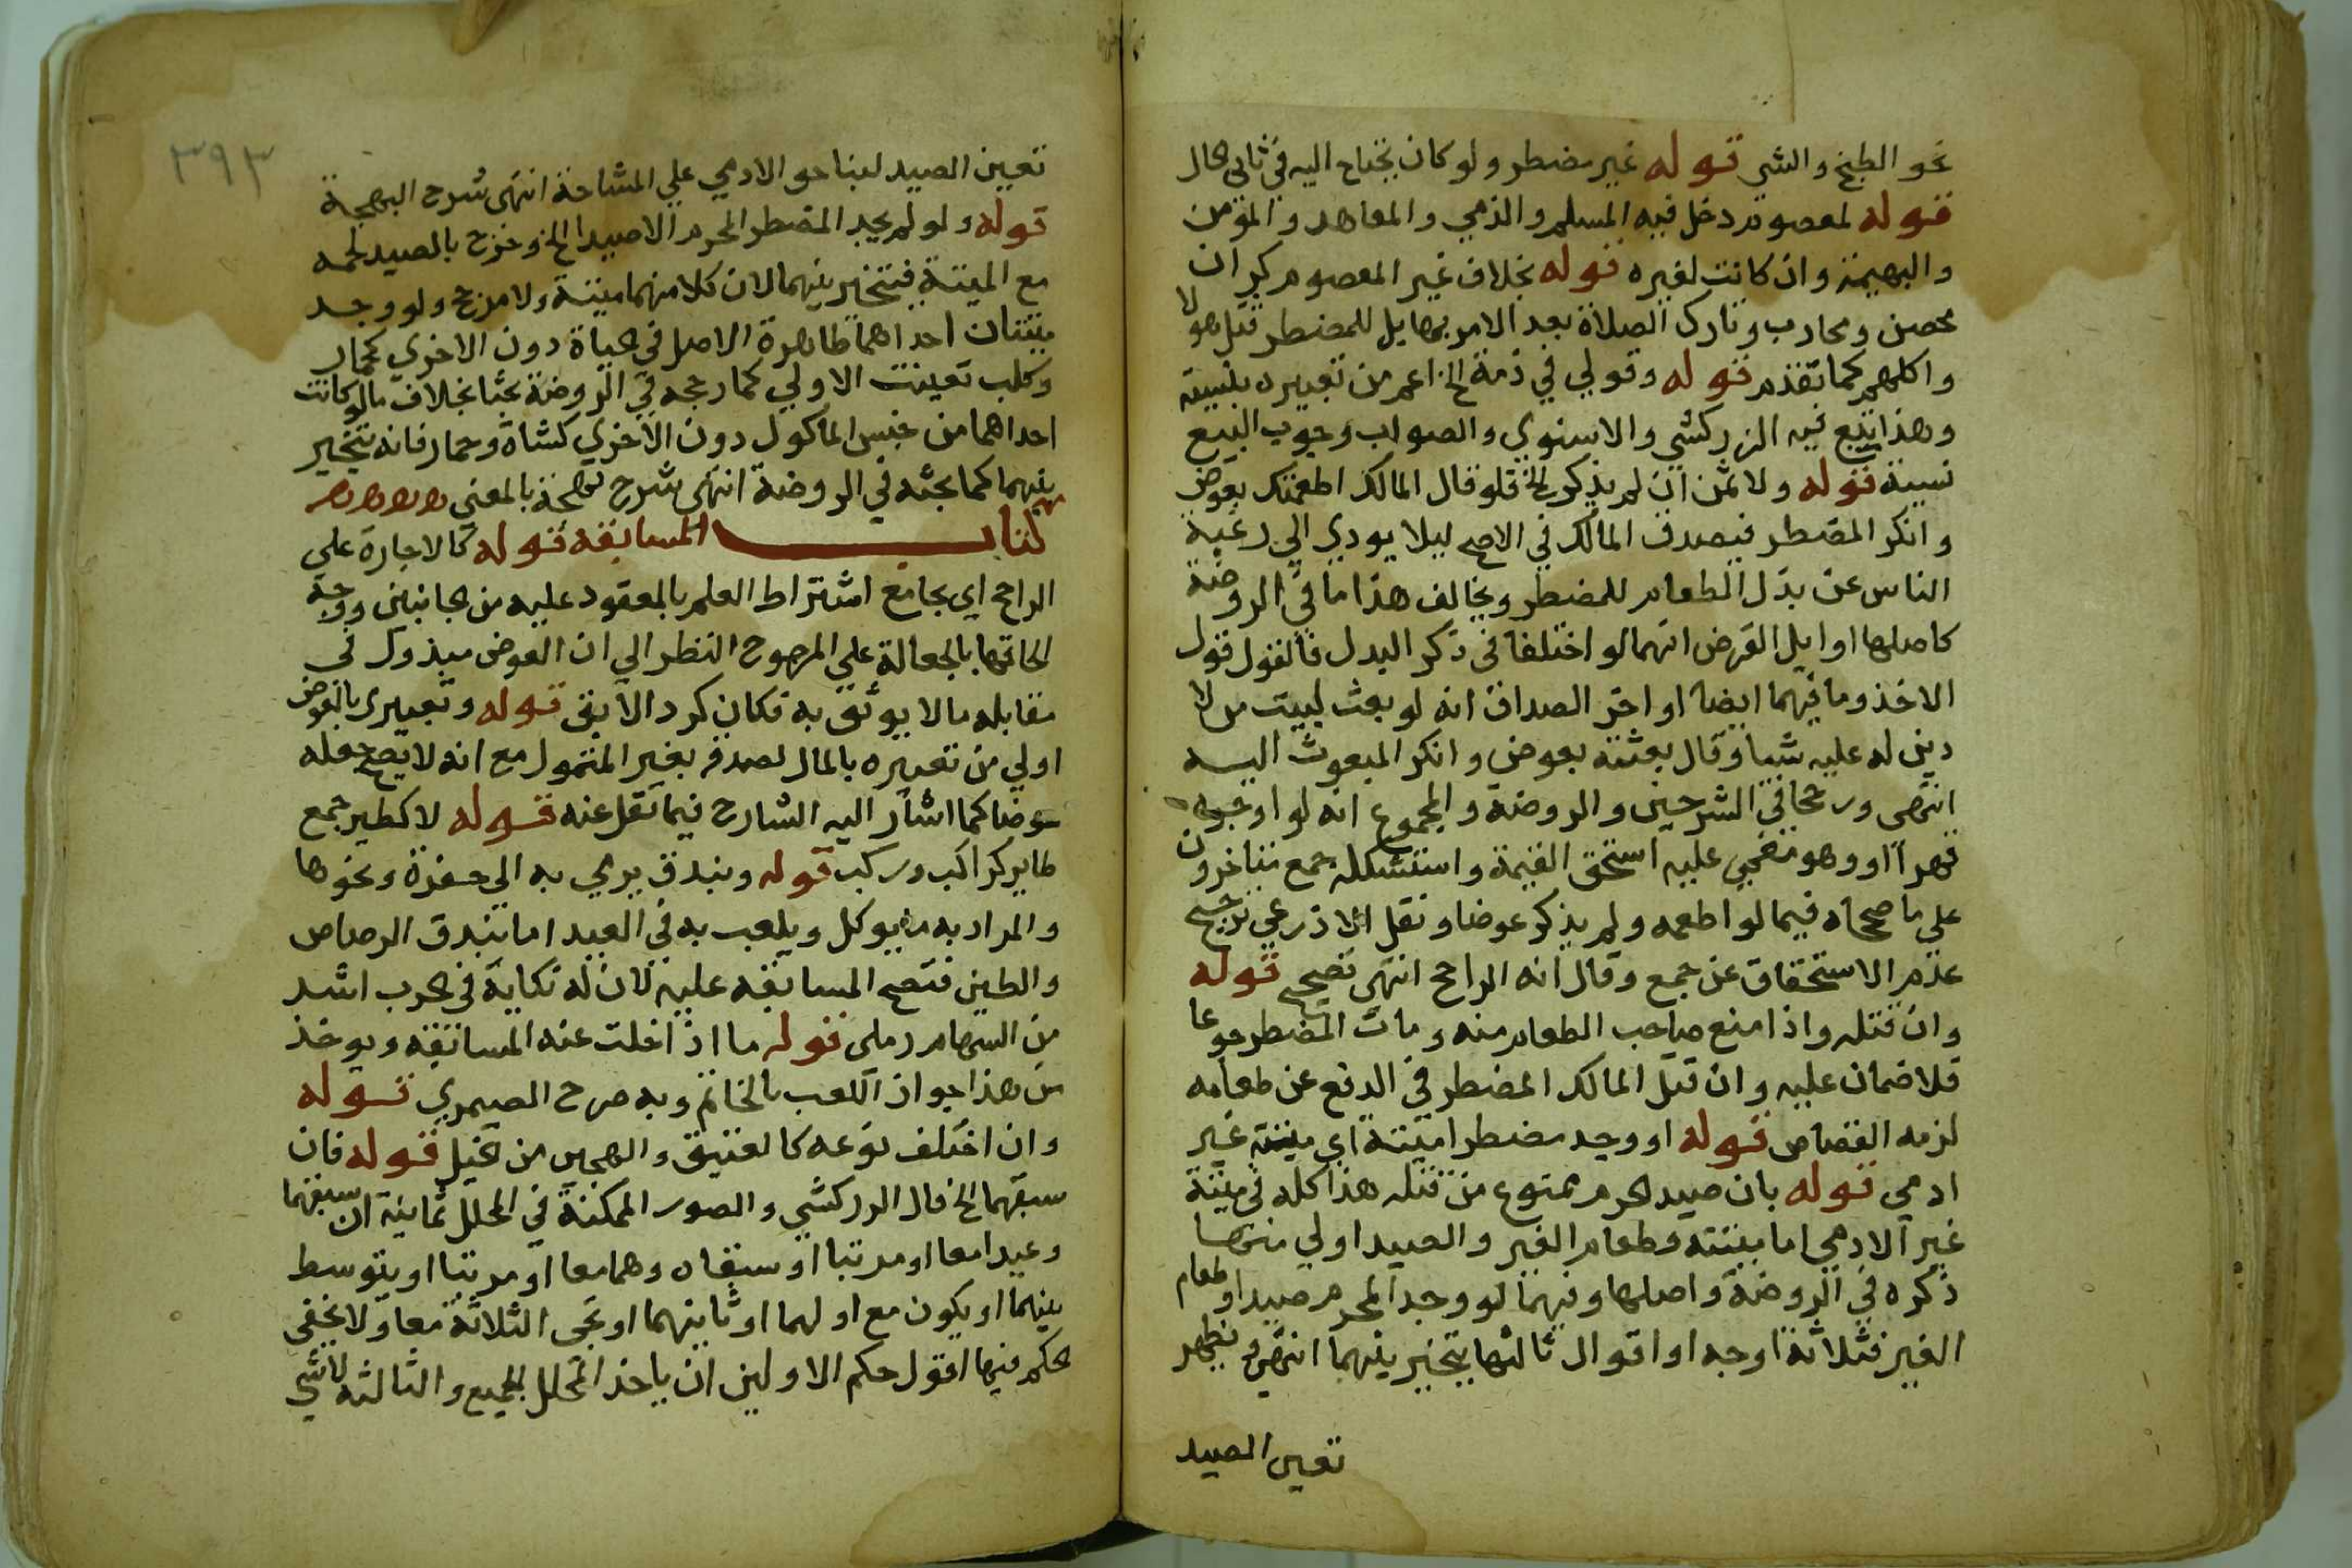 نحو الطبخ والشي قوله غير مضطر ولو كان يحتاج اليه في ثاني الحال
قوله لمعصوم دخل فيه المسلم والذمي والمعاهد والمؤمن
والبهيمة وان كانت لغيره قوله بخلاف غير المعصوم كزان
محصن ومحارب وتارك الصلاة بعد الامر بها يل للمضطر قتل هولا
واكلهم كما تقدم قوله وقولي في ذمة الخ اعم من تعبيره بنسيئة
وهذا تبع فيه الزركشي والاسنوي والصواب وجوب البيع
نسيئة قوله ولا ثمن ان لم يذكر الخ فلو قال المالك اطعمتك بعوض
وانكر المضطر فيصدق المالك في الاصح ليلا يودي الي رغبة
الناس عن بذل الطعام للمضطر ويخالف هذا ما في الروضة
كاصلها اوايل القرض انهما لو اختلفا في ذكر البدل فالقول قول
الاخذ وما فيهما ايضا اواخر الصداق انه لو بعث لبيت من لا
دين له عليه شيا وقال بعثته بعوض وانكر المبعوث اليه
انتهى ورجحا في الشرحين والروضة والمجموع انه لو اوجره
قهرا او وهو مغمي عليه استحق القيمة واستشكله جمع متاخرون
علي ما صححاه فيما لو اطعمه ولم يذكر عوضا ونقل الاذرعي ترجيح
عدم الاستحقاق عن جمع وقال انه الراجح انتهى تصحيح قوله
وان قتله واذا منع صاحب الطعام منه ومات المضطر جوعا
فلا ضمان عليه وان قتل المالك المضطر في الدفع عن طعامه
لزمه القصاص قوله او وجد مضطر ميتة اي ميتة غير
ادمي قوله بان صيد الحرم ممنوع من قتله هذا كله في ميتة
غير الادمي اما ميتته وطعام الغير والصيد اولي منها
ذكره في الروضة واصلها وفيهما لو وجد المحرم صيدا وطعام
الغير فثلاثة اوجه او اقوال ثالثها يتخير بينهما انتهى ويظهر
تعين الصيد
٣٩٣
تعين الصيد لبنا حق الادمي علي المشاحة انتهى شرح البهجة
قوله ولو لم يجد المضطر المحرم الا صيدا الخ وخرج بالصيد لحمه
مع الميتة فيتخير بينهما لان كلا منهما ميتة ولا مرجح ولو وجد
ميتتان احداهما طاهرة الاصل في الحياة دون الاخري كحمار
وكلب تعينت الاولي كما رجحه في الروضة بحثا بخلاف ما لو كانت
احداهما من جنس الماكول دون الاخري كشاة وحمار فانه يتخير
بينهما كما بحثه في الروضة انتهى شرح بهجة بالمعنى
كتاب المسابقة قوله كالاجارة علي
الراجح اي بجامع اشتراط العلم بالمعقود عليه من الجانبين ووجه
الحاقها بالجعالة علي المرجوح النظر الي ان العوض مبذول في
مقابله ما لا يوثق به فكان كرد الابق قوله وتعبيري بالعوض
اولي من تعبيره بالمال لصدقه بغير المتمول مع انه لا يصح جعله
عوضا كما اشار اليه الشارح فيما نقل عنه قوله لا كطير جمع
طاير كراكب وركب قوله وبندق يرمي به الي حفرة ونحوها
والمراد به ما يوكل ويلعب به في العيد اما بندق الرصاص
والطين فتصح المسابقة عليه لان له نكاية في الحرب اشد
من السهام رملي قوله ما اذا خلت عنه المسابقة ويوخذ
من هذا جواز اللعب بالخاتم وبه صرح الصيمري قوله
وان اختلف نوعه كالعتيق والهجين من الخيل قوله فان
سبقهما الخ قال الزركشي والصور الممكنة في المحلل ثمانية ان سبقهما
وعيدا معا او مرتبا او سبقاه وهما معا او مرتبا او يتوسط
بينهما او يكون مع اولهما او ثانيهما او تجي الثلاثة معا ولا يخفى
الحكم فيها اقول حكم الاولين ان ياخذ المحلل الجميع والثالثه لا شي